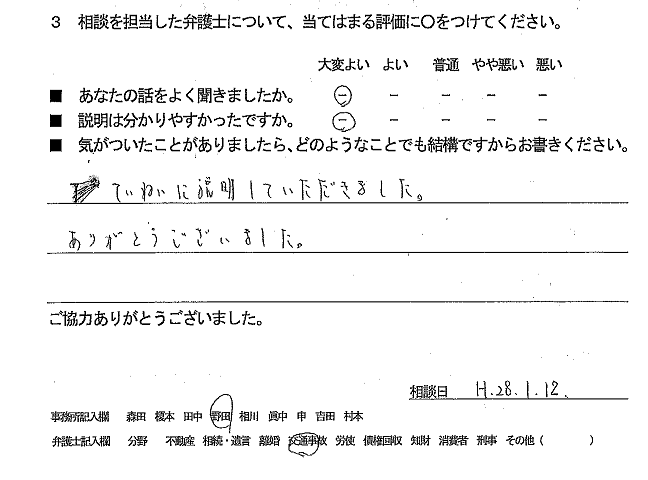 3 相談を担当した弁護士について、当てはまる評価に○をつけてください。
大変よい よい 普通 やや悪い 悪い
■ あなたの話をよく聞きましたか。 － － － － －
■ 説明は分かりやすかったですか。 － － － － －
■ 気がついたことがありましたら、どのようなことでも結構ですからお書きください。
ていねいに説明していただきました。
ありがとうございました。
ご協力ありがとうございました。
相談日 H.28.1.12.
事務所記入欄 森田 榎本 田中 野田 相川 眞中 申 吉田 村本
弁護士記入欄 分野 不動産 相続・遺言 離婚 交通事故 労使 債権回収 知財 消費者 刑事 その他（ ）